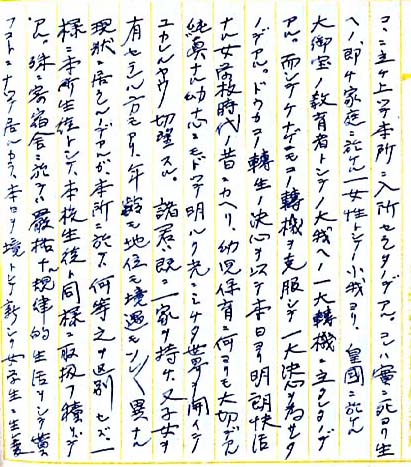 コヽニ立チ上ツテ本所ニ入所セラレタノデアル。コレハ實ニ死ヨリ生
ヘノ即チ家庭ニ於ケル一女性トシテノ小我ヨリ、皇國ニ於ケル
大御宝ノ教育者トシテノ大我ヘノ一大轉機ニ立タレタノデ
アル。而シテケナゲニモコノ轉機ヲ克服シテ一大決心ヲ為サレタ
ノデアル。ドウカコノ轉生ノ決心ヲ以テ本日ヨリ明朗快活
ナル女学校時代ノ昔ニカヘリ、幼児保育ニ何ヨリモ大切デアル
純真ナル幼心ニモドツテ明ルク光ニミチタ世界ヲ開イテ
ユカレルヤウ切望スル。 諸君ハ既ニ一家ヲ持チ、又子女ヲ
有セラレル方モアリ、年齢モ地位モ境遇モソレゾレ異ナル
現状ニ居ラレルノデアルガ、本所ニ於テハ何等之ヲ区別セズ一
様ニ本所生徒トシテ、本校生徒ト同様ニ取扱フ積リデ
アル。殊ニ寄宿舎ニ於テハ嚴格ナル規律的生活ヲシテ貰
フコトニナツテ居ルカラ、本日ヲ境トシテ新シク女学生ニ生レ変